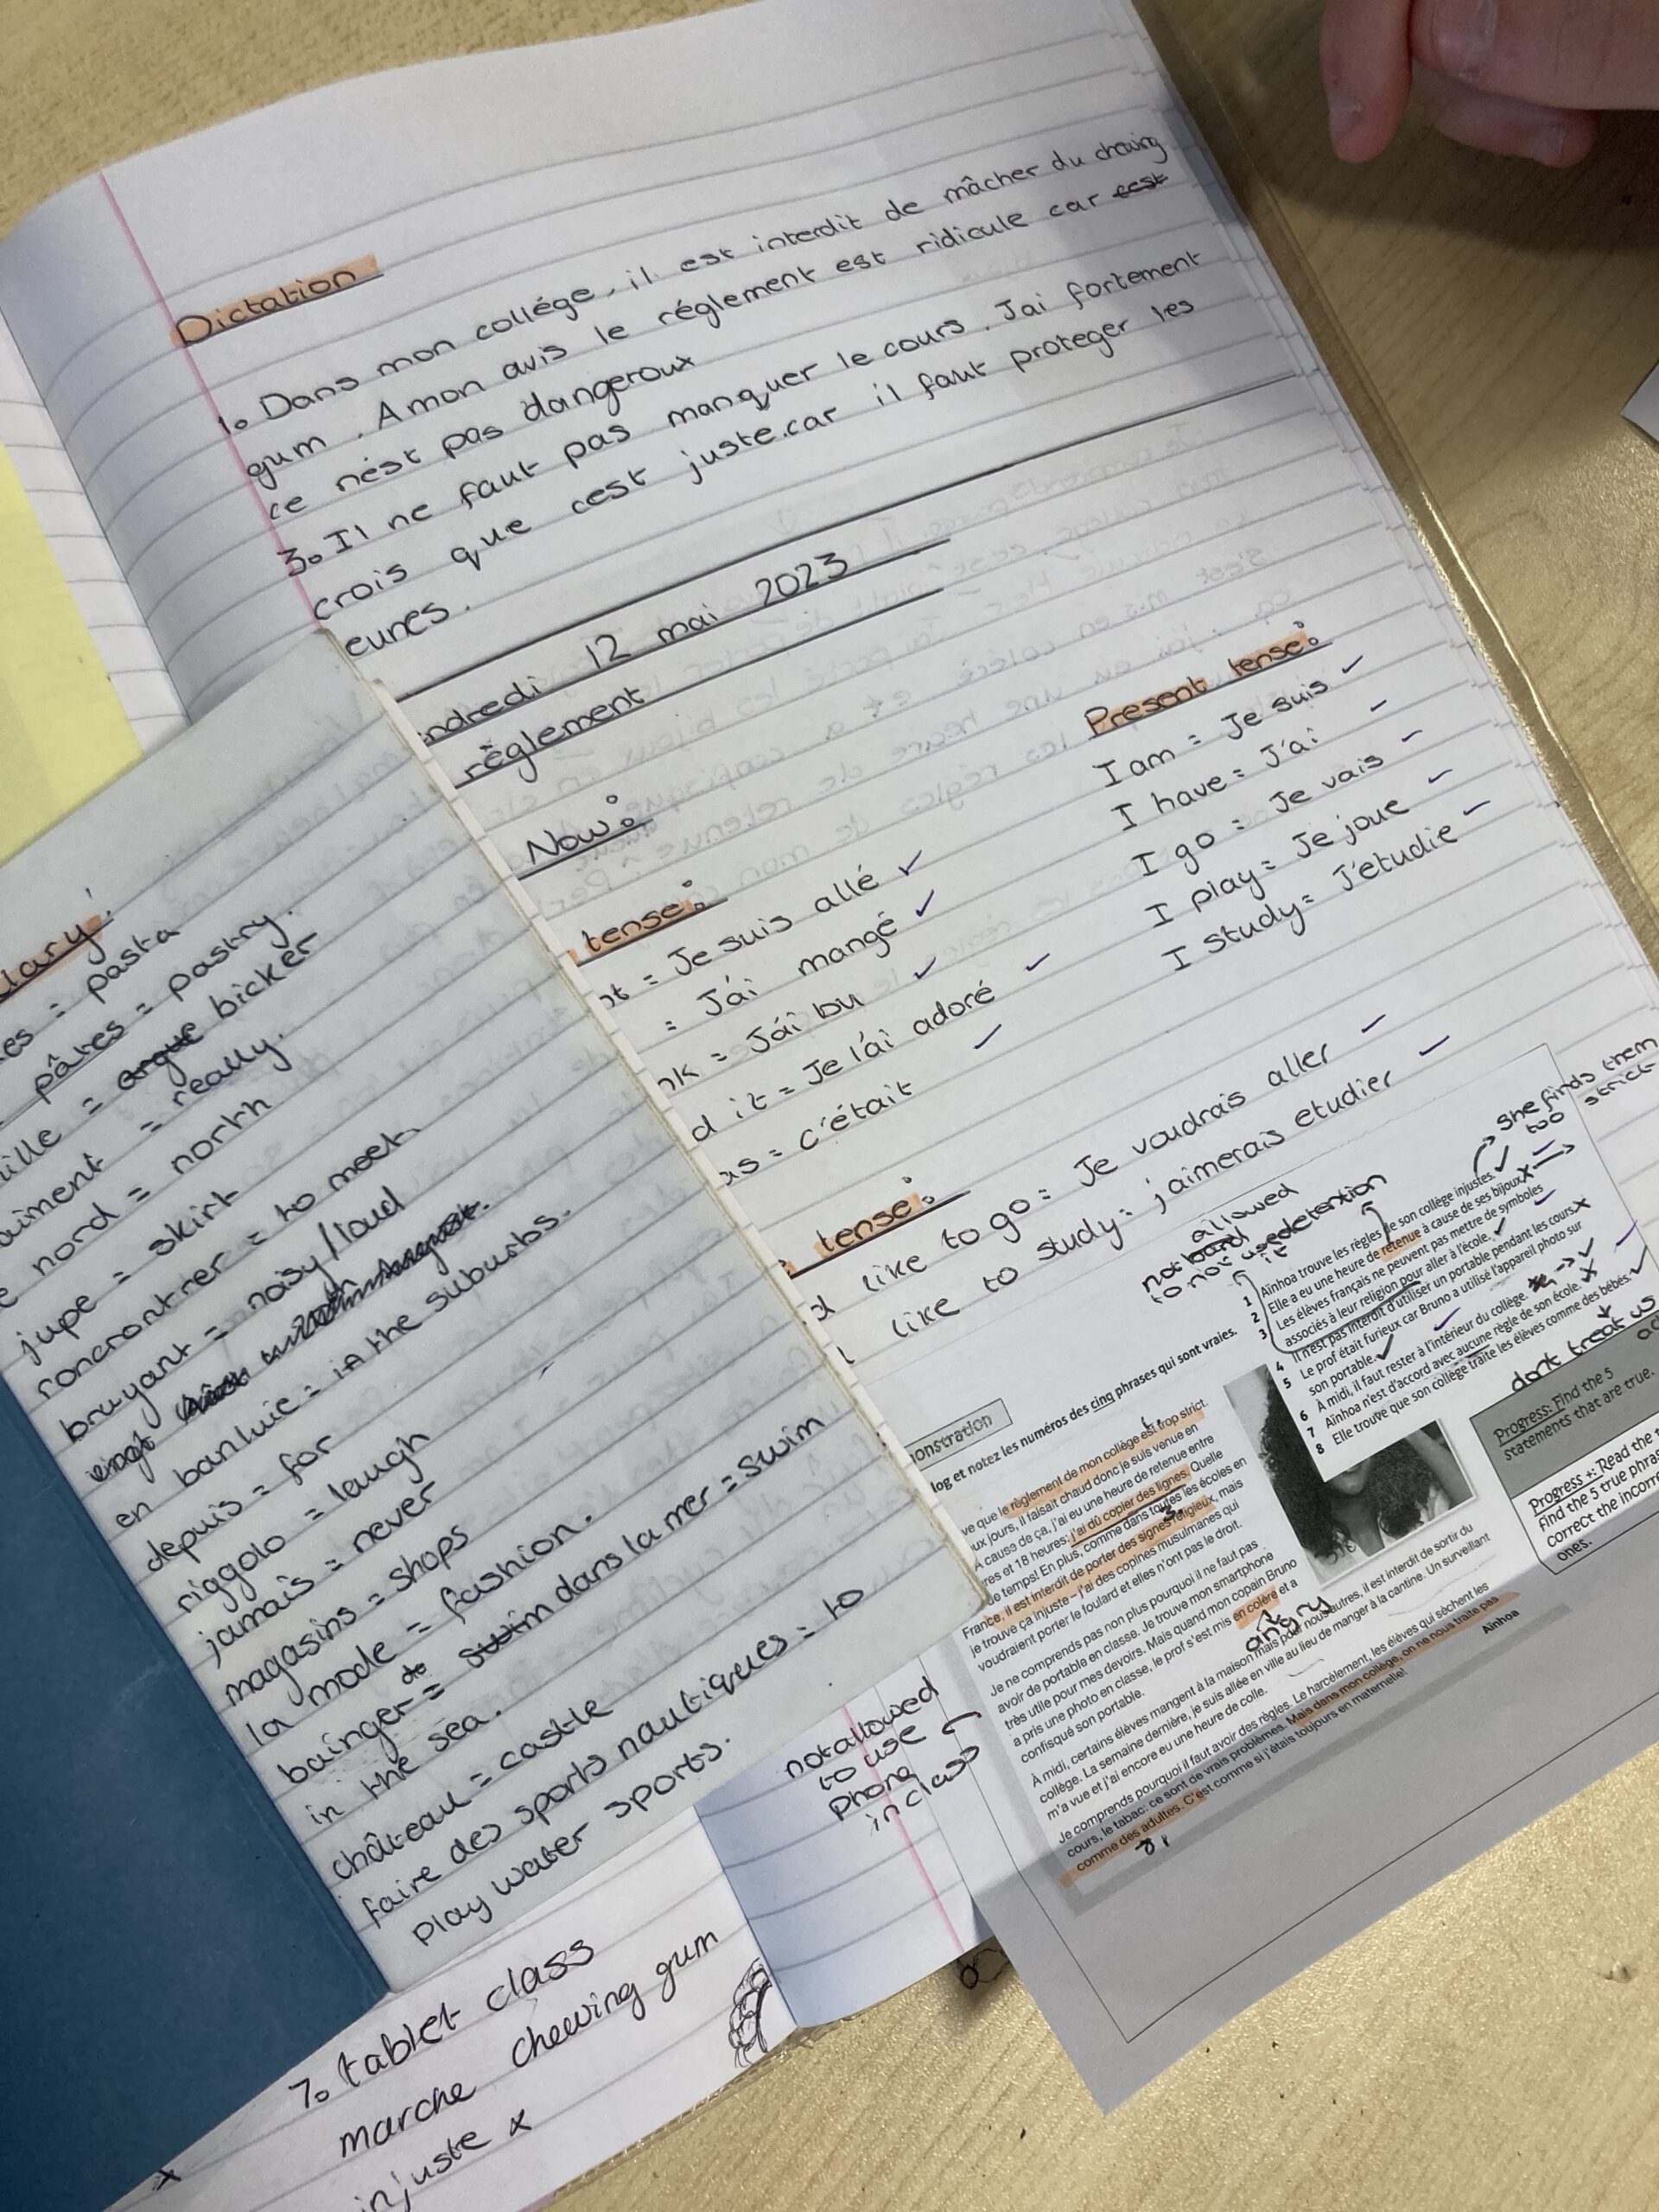 Dictation
1. Dans mon collége, il est interdit de mâcher du chewing
gum. A mon avis le réglement est ridicule car cest
ce nést pas dangeroux
3. Il ne faut pas manquer le cours. Jai fortement
crois que cest juste.car il faut proteger les
eunes.
ndredi 12 mai 2023
règlement
Now:
tense:
= Je suis allé
= J'ái mangé
nk = Jái bu
d it = Je lái adoré
as = c'était
Present tense:
I am = Je suis
I have = J'ai
I go = Je vais
I play = Je joue
I study = J'etudie
tense:
d like to go = Je voudrais aller
like to study = j'aimerais etudier
lary!
es = pasta
pâtes = pastry.
ille = argue bicker
aiment = really.
e nord = north
jupe = skirt
roncrontrer = to meet
bruyant = noisy/loud
en banluie = in the suburbs.
depuis = for
riggolo = laugh
jamais = never
magasins = shops
la mode = fashion.
bainger de = swim dans la mer = swim
in the sea.
château = castle
faire des sports nautiques = to
play water sports.
7. tablet class
marche chewing gum
injuste x
not allowed
to use
phone
in class
she finds them
too
strict
allowed
not band
to not use
it
detention
1 Ainhoa trouve les règles de son collège injustes.
2 Elle a eu une heure de retenue à cause de ses bijoux.
3 Les élèves français ne peuvent pas mettre de symboles
associés à leur religion pour aller à l'école.
4 Il n'est pas interdit d'utiliser un portable pendant les cours.
5 Le prof était furieux car Bruno a utilisé l'appareil photo sur
son portable.
6 À midi, il faut rester à l'intérieur du collège.
7 Ainhoa n'est d'accord avec aucune règle de son école.
8 Elle trouve que son collège traite les élèves comme des bébés.
dont treat us
onstration
log et notez les numéros des cinq phrases qui sont vraies.
ve que le règlement de mon collège est trop strict.
ux jours, il faisait chaud donc je suis venue en
À cause de ça, j'ai eu une heure de retenue entre
res et 18 heures: j'ai dû copier des lignes. Quelle
de temps! En plus, comme dans toutes les écoles en
France, il est interdit de porter des signes religieux, mais
je trouve ça injuste – j'ai des copines musulmanes qui
voudraient porter le foulard et elles n'ont pas le droit.
3.
Je ne comprends pas non plus pourquoi il ne faut pas
avoir de portable en classe. Je trouve mon smartphone
très utile pour mes devoirs. Mais quand mon copain Bruno
a pris une photo en classe, le prof s'est mis en colère et a
confisqué son portable.
angry
À midi, certains élèves mangent à la maison mais pour nous autres, il est interdit de sortir du
collège. La semaine dernière, je suis allée en ville au lieu de manger à la cantine. Un surveillant
m'a vue et j'ai encore eu une heure de colle.
Je comprends pourquoi il faut avoir des règles. Le harcèlement, les élèves qui sèchent les
cours, le tabac: ce sont de vrais problèmes. Mais dans mon collège, on ne nous traite pas
comme des adultes. C'est comme si j'étais toujours en maternelle!
Ainhoa
Progress: Find the 5
statements that are true.
Progress +: Read the t
Find the 5 true phras
correct the incorre
ones.